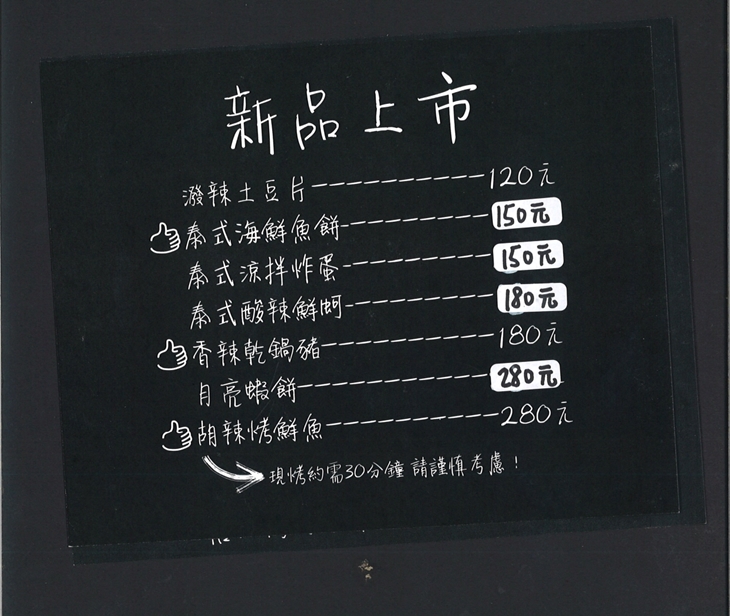 新品上市
潑辣土豆片----------120元
泰式海鮮魚餅---------150元
泰式涼拌炸蛋---------150元
泰式酸辣鮮蚵---------180元
香辣乾鍋豬----------180元
月亮蝦餅-----------280元
胡辣烤鮮魚----------280元
現烤約需30分鐘 請謹慎考慮!